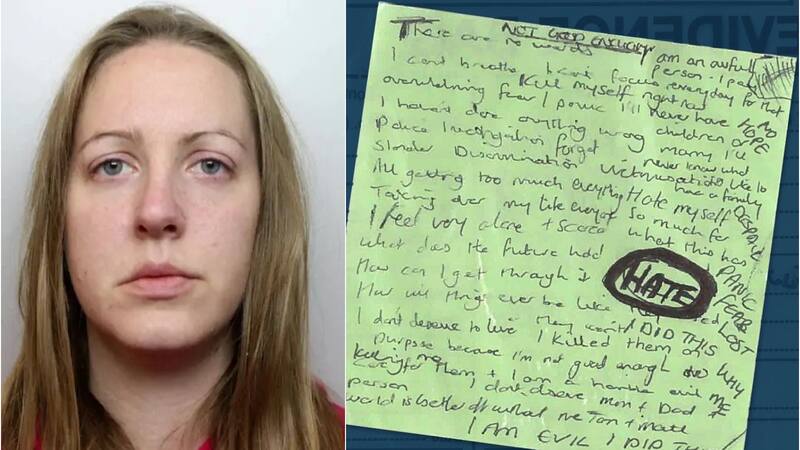 EVIDENCE
NOT GOOD ENOUGH
There are no words I am an awful
person - I pay
I can't breathe I can't focus everyday for that
Kill myself right now
overwhelming fear/panic I'll never have NO
HOPE
I haven't done anything wrong children or
marry I'll
Police investigation forget never know what
Slander Discrimination Victimisation like to
have a family
All getting too much everything I Hate myself DESPAIR
Taking over my life everyone so much for
I feel very alone + scared what this has
What does the future hold PANIC
How can I get through it HATE FEAR
How will things ever be like LOST
I DID THIS
I don't deserve to live I killed them on
purpose because I'm not good enough WHY
ME
care for them + I am a horrible evil
person I don't deserve mum + Dad
world is better off without me
I AM EVIL I DID THIS